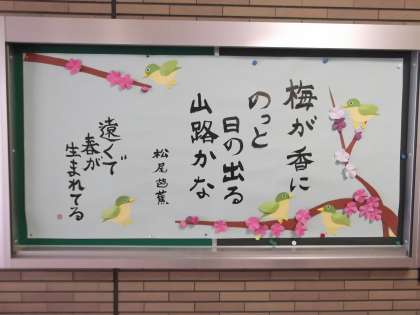 梅が香に
のっと
日の出る
山路かな
松尾芭蕉
遠くで
春が
生まれてる